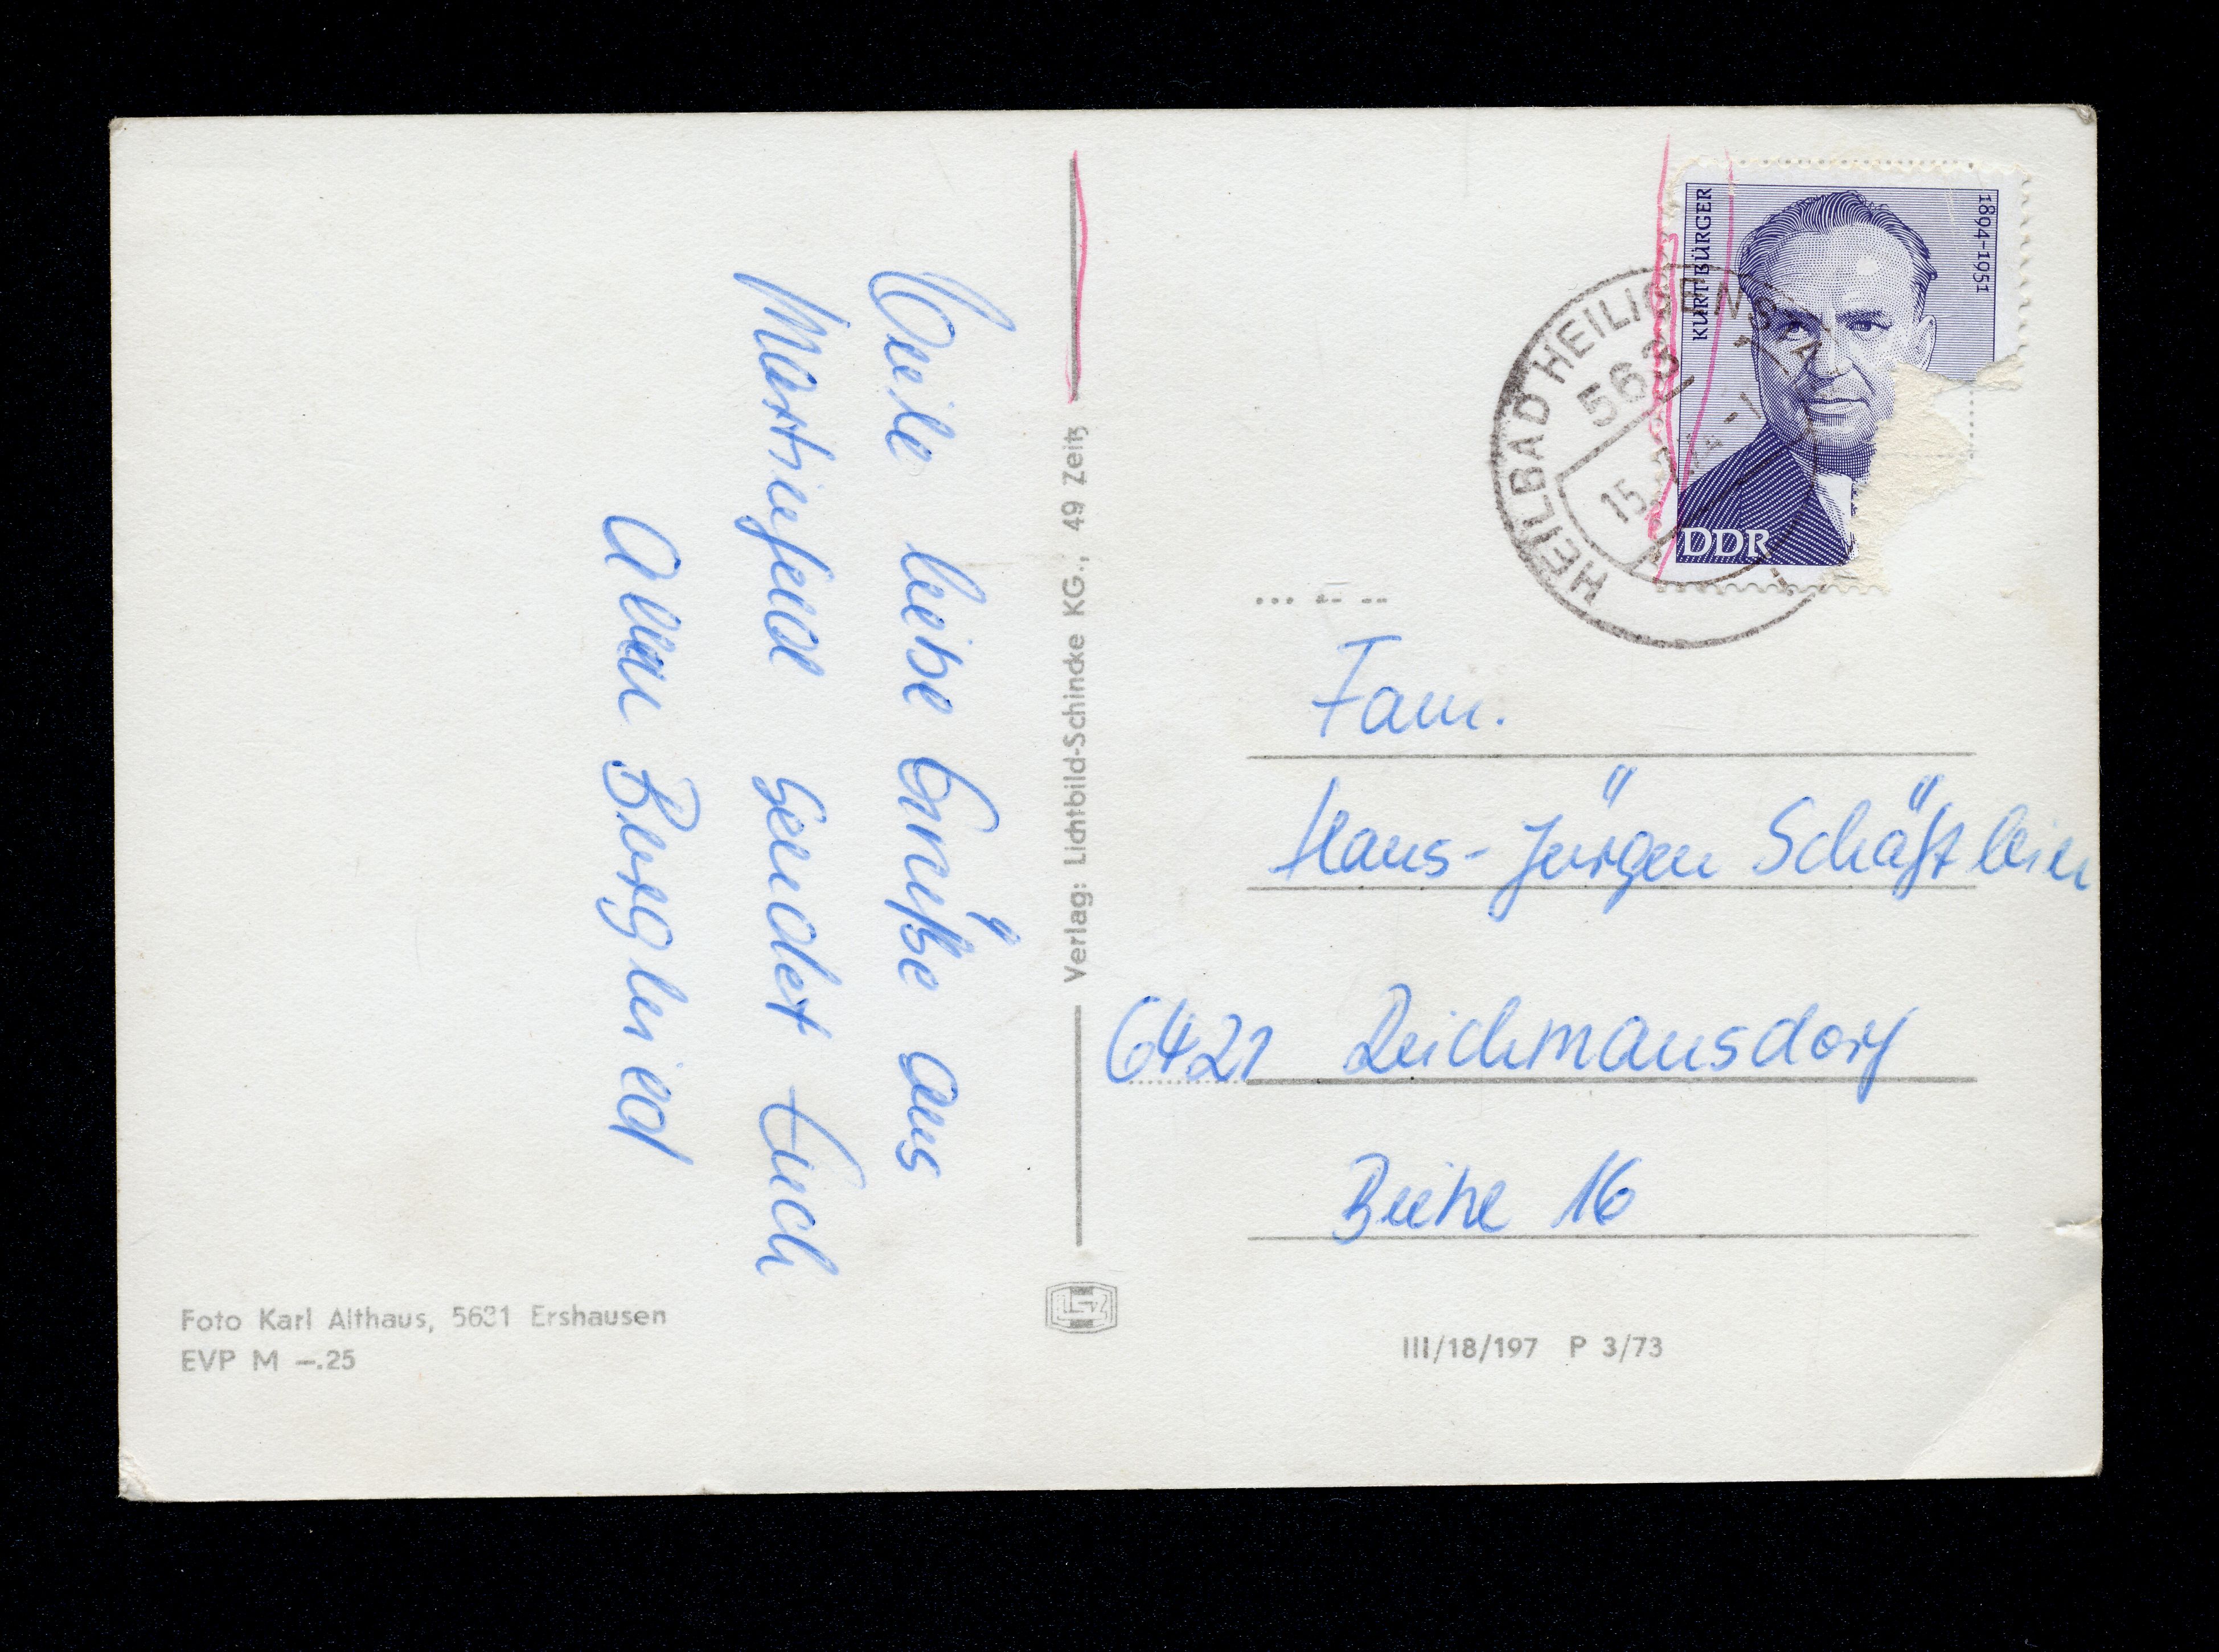 Viele liebe Grüße aus
Martinfeld sendet Euch
Alban Burglind
Verlag: Lichtbild-Schincke KG., 49 Zeitz
Foto Karl Althaus, 5631 Ershausen
EVP M –.25
KURT BÜRGER
1894-1951
DDR
HEILBAD HEILIGENSTA
563
15.
Fam.
Hans-Jürgen Schäftlein
6421 Reichmansdorf
Beihe 16
III/18/197 P 3/73